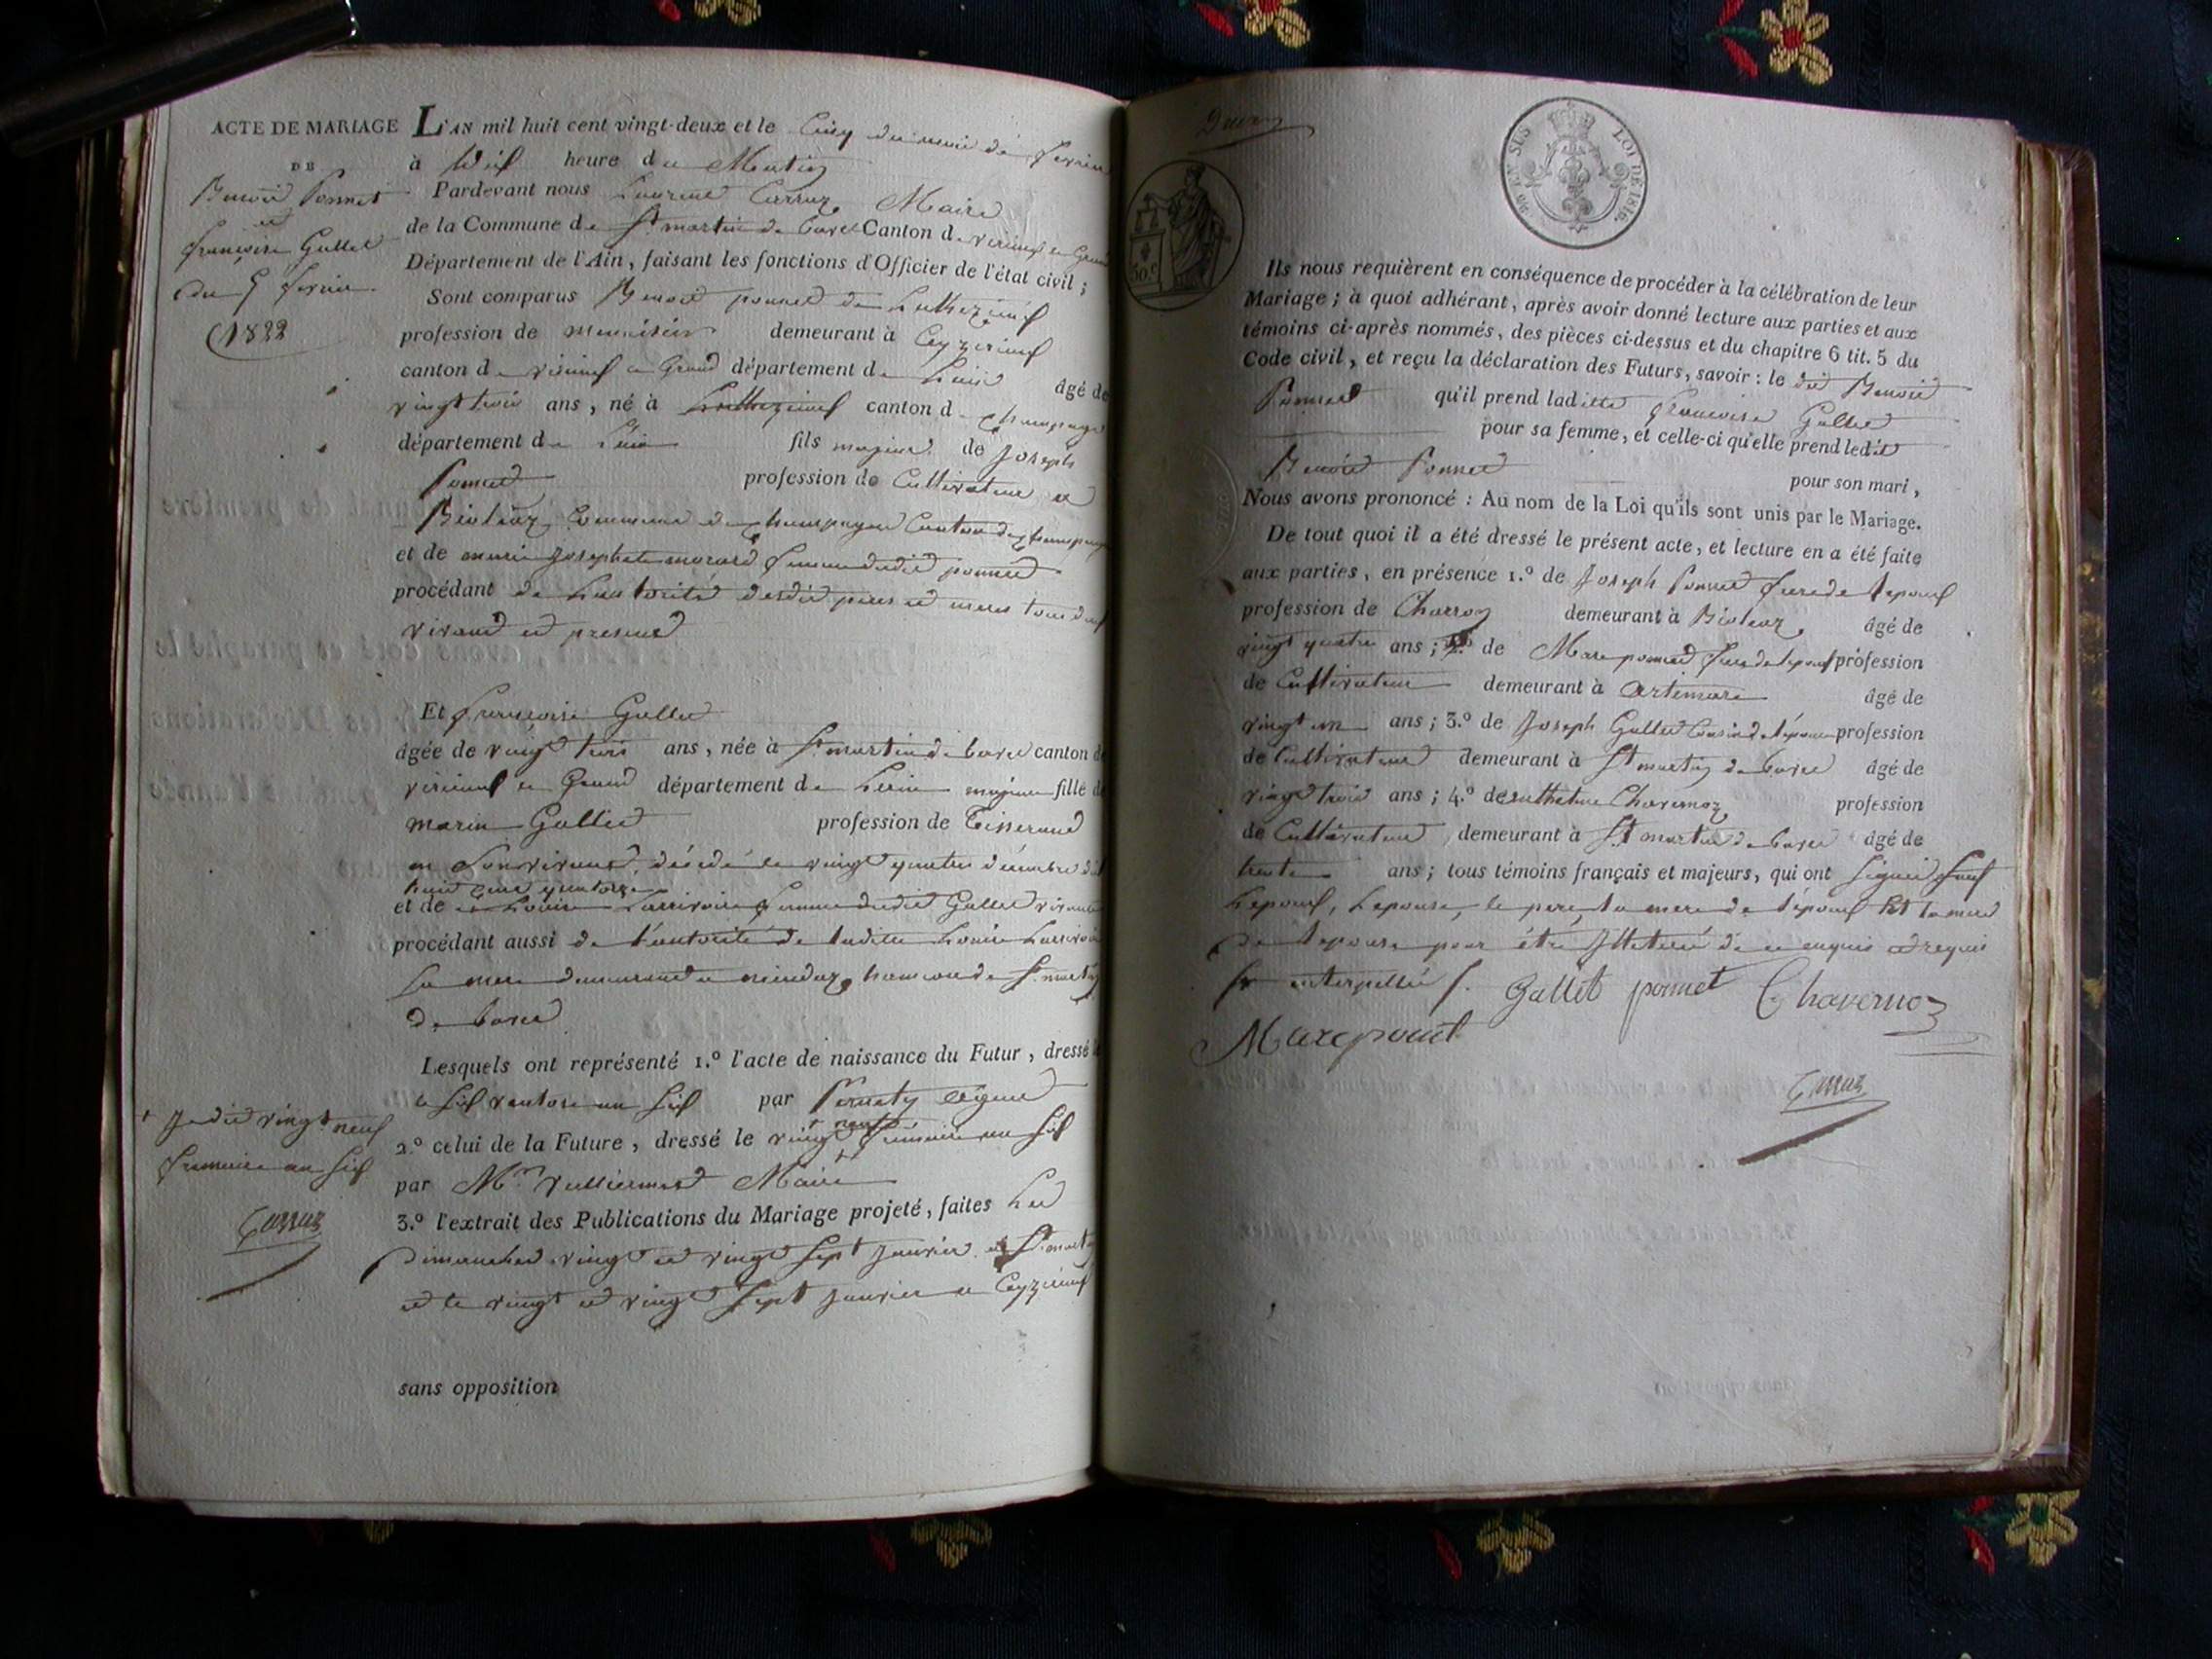 ACTE DE MARIAGE
DE
Benoit Ponnet
et
françoise Gallet
du 5 fevrier
1822
L'AN mil huit cent vingt-deux et le Cinq du mois de fevrier
à dix heure du Matin
Pardevant nous Laurent Carraz Maire
de la Commune de St martin de bavel Canton de virieux le Grand
Département de l'Ain, faisant les fonctions d'Officier de l'état civil;
Sont comparus Benoit ponnet de Luthezieux
profession de demeurant à Ceyzerieux
canton de virieux le Grand département de Lain âgé de
vingt trois ans, né à Luthezieux canton de champagne
département de Lain fils majeur de Joseph
Ponnet profession de Cultivateur a
Commune de champagne Canton de champagne
et de marie Josephete morard femme dudit ponnet
procédant de Lautorité desdit pere et mere tous deux
vivant et present
Et francoise Gallet
âgée de vingt trois ans, née à St martin de bavel canton de
virieux le Grand département de Lain majeure fille de
marin Gallet profession de Tisserand
en Son vivant, décédé le vingt quatre décembre dix
huit cent quatorze
et de Louise femme dudit Gallet vivante
procédant aussi de l'autorité de ladite Louise
Sa mere demeurant a hameau de St martin
de bavel
Lesquels ont représenté 1.º l'acte de naissance du Futur, dressé le
le six ventose an six par Pernety
2.º celui de la Future, dressé le vingt neuf frimaire an six
par Mr. Maire
3.º l'extrait des Publications du Mariage projeté, faites Les
Dimanches vingt et vingt Sept Janvier a St martin
et le vingt et vingt Sept Janvier a Ceyzerieux
sans opposition
+ Je dit vingt neuf
frimaire an six
Carraz
30.c
90 EN SUS LOI DE 1816.
Ils nous requièrent en conséquence de procéder à la célébration de leur
Mariage; à quoi adhérant, après avoir donné lecture aux parties et aux
témoins ci-après nommés, des pièces ci-dessus et du chapitre 6 tit. 5 du
Code civil, et reçu la déclaration des Futurs, savoir: le dit Benoit
Ponnet qu'il prend ladite francoise Gallet
pour sa femme, et celle-ci qu'elle prend ledit
Benoit Ponnet pour son mari,
Nous avons prononcé: Au nom de la Loi qu'ils sont unis par le Mariage.
De tout quoi il a été dressé le présent acte, et lecture en a été faite
aux parties, en présence 1.º de Joseph Ponnet frere de lepoux
profession de Charron demeurant à âgé de
vingt quatre ans; 2.º de Marc ponnet frere de lepoux profession
de Cultivateur demeurant à Artemare âgé de
vingt un ans; 3.º de Joseph Gallet Cousin de l'épouse profession
de Cultivateur demeurant à St martin de bavel âgé de
vingt trois ans; 4.º de Chavernoz profession
de Cultivateur demeurant à St martin de bavel âgé de
trente ans; tous témoins français et majeurs, qui ont Signé Sauf
Lepoux, Lepouse, le pere, la mere de l'époux Et la mere
De lepouse pour être Illeteré de ce enquis et requis
Gallet ponnet Chavernoz
Marc ponnet
Carraz